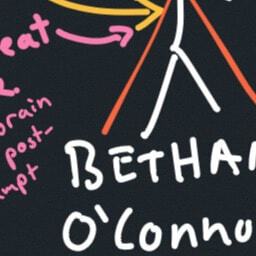 eat
brain
post-
BETHA
O'Connu